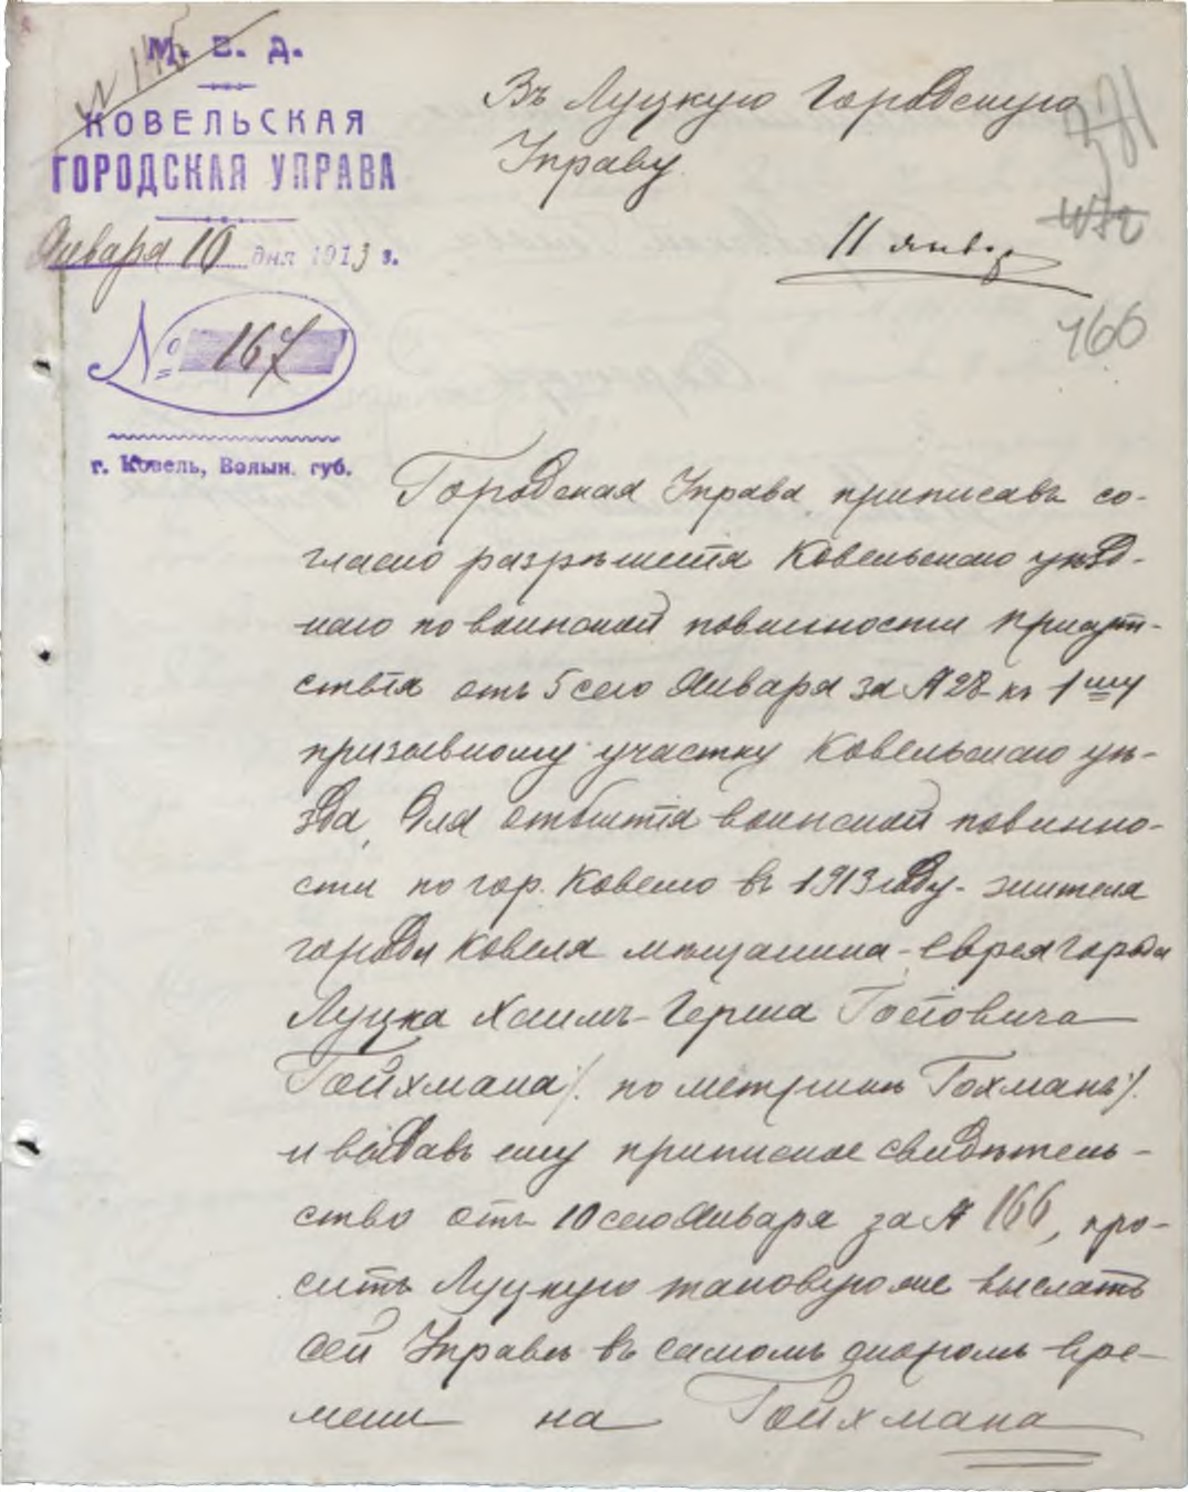 М. В. Д.
КОВЕЛЬСКАЯ
ГОРОДСКАЯ УПРАВА
Января 10 дня 1913 г.
№ 167
г. Ковель, Волын. губ.
Въ Луцкую Городскую
Управу
381
11 январ
166
Городская Управа, приписавъ со-
гласно разрѣшенія Ковельскаго уѣзд-
наго по воинской повинности Присут-
ствія отъ 5 сего Января за № 28 къ 1му
призывному участку Ковельскаго уѣ-
зда, для отбытія воинской повинно-
сти по гор. Ковелю въ 1913 году жителя
города Ковеля мѣщанина-еврея города
Луцка Хаимъ-Герша
Гойхмана /. по метрикѣ Гохманъ /.
и выдавъ ему приписное свидѣтель-
ство отъ 10 сего Января за № 166, про-
ситъ Луцкую таковую же выслать
сей Управѣ въ самомъ скоромъ вре-
мени на Гойхмана